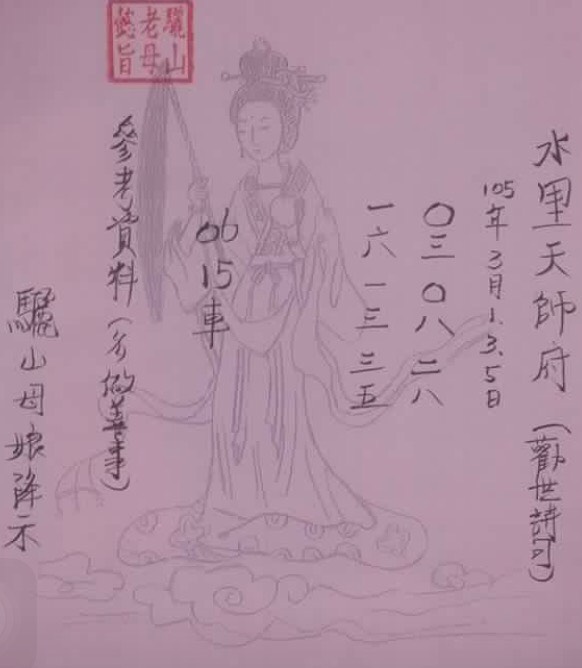 水里天師府(勸世詩句)
105年3月1.3.5日
〇三 〇八 二八
一六 一三 三五
06
15車
參考資料(多做善事)
驪山母娘降示
驪山
老母
懿旨